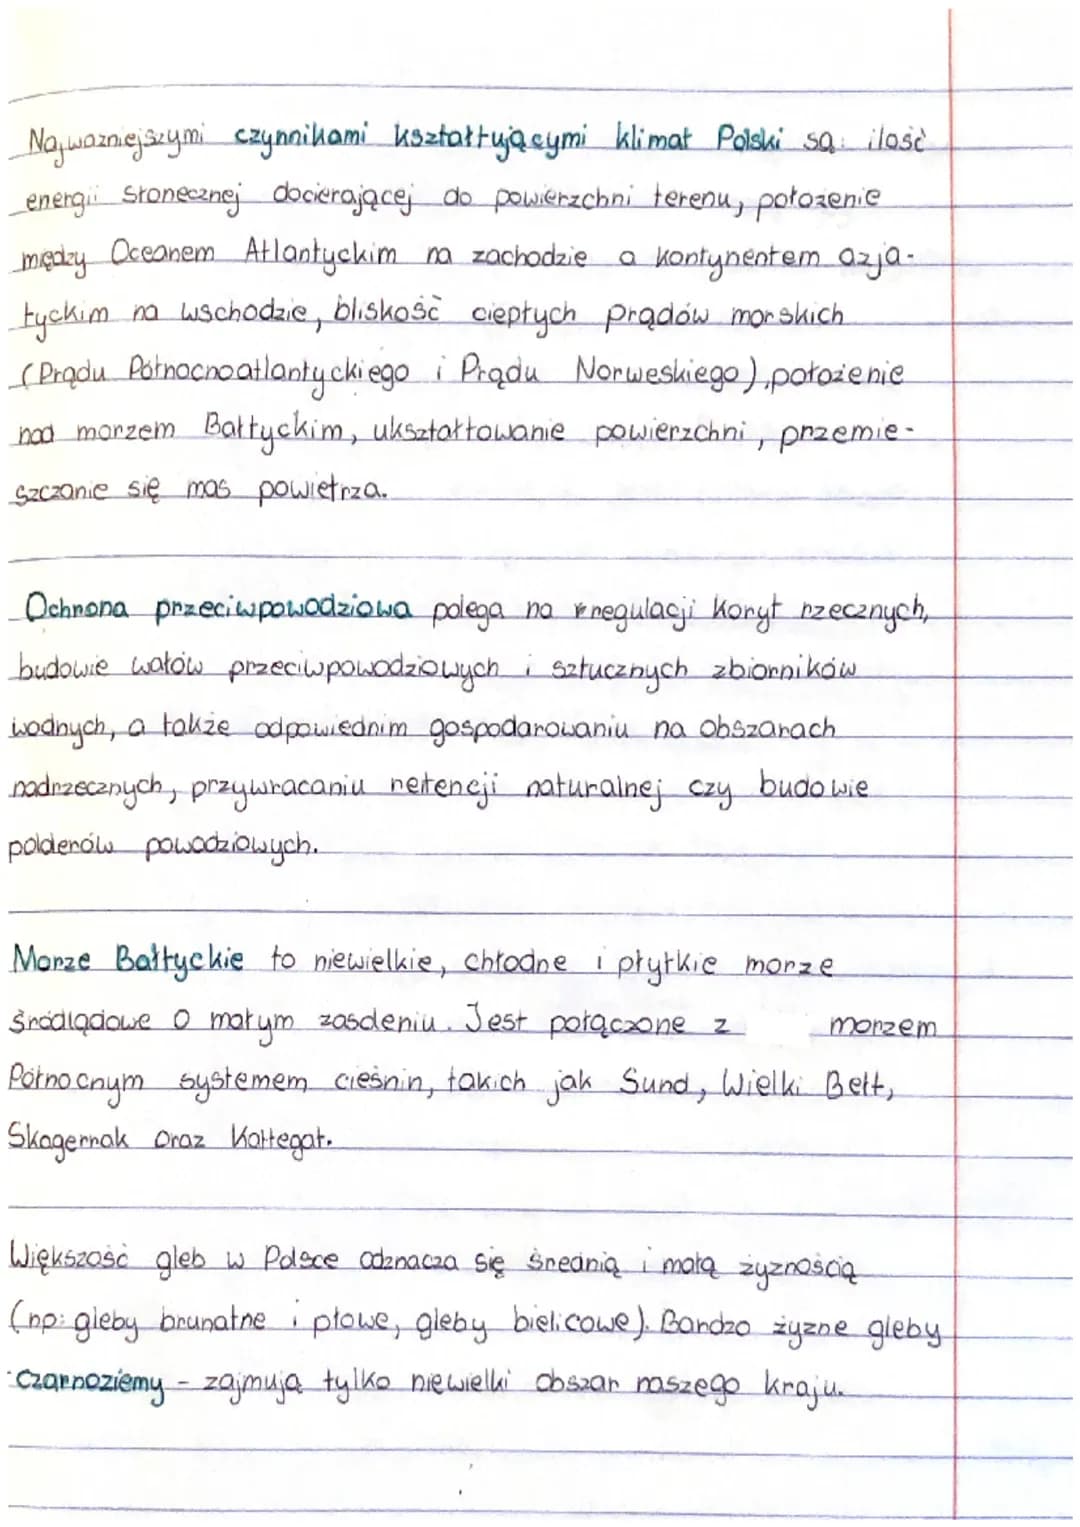 Najwazniejszymi czynnikami kształtującymi klimat Polski są: ilość
energii Słonecznej docierającej do powierzchni terenu, położenie
między Oceanem Atlantyckim na zachodzie a kontynentem azja-
tyckim na wschodzie, bliskość ciepłych prądów morskich
(Prądu Północnoatlantyckiego i Prądu Norweskiego), położenie
nad morzem Bałtyckim, ukształtowanie powierzchni, przemie-
szczanie się mas powietrza.
Ochrona przeciwpowodziowa polega na regulacji koryt rzecznych,
budowie wałów przeciwpowodziowych i sztucznych zbiorników
wodnych, a także odpowiednim gospodarowaniu na obszarach
nadrzecznych, przywracaniu retencji naturalnej czy budowie
polderów powodziowych.
Morze Bałtyckie to niewielkie, chłodne i płytkie morze
śródlądowe o małym zasoleniu. Jest połączone z morzem
Północnym systemem cieśnin, takich jak Sund, Wielki Bełt,
Skagerrak oraz Kattegat.
Większość gleb w Polsce odznacza się średnią i małą żyznością
(np: gleby brunatne i płowe, gleby bielicowe). Bardzo żyzne gleby
-czarnoziemy - zajmują tylko niewielki obszar naszego kraju.